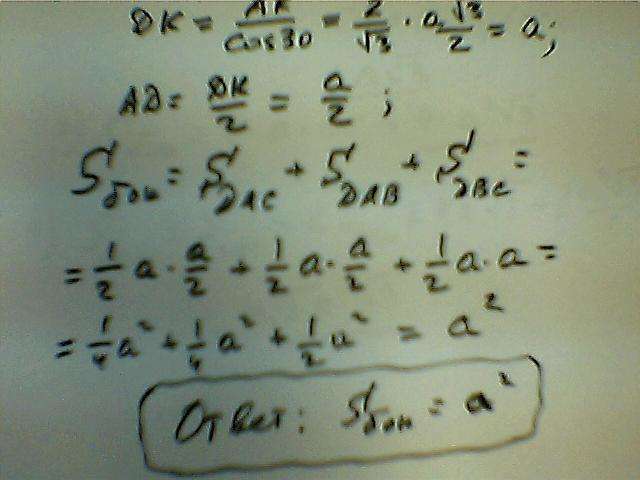 DK = AK/cos30 = 2/√3 · a√3/2 = a;
AD = DK/2 = a/2 ;
Sбок = SDAC + SDAB + SDBC =
= 1/2 a · a/2 + 1/2 a · a/2 + 1/2 a · a =
= 1/4 a² + 1/4 a² + 1/2 a² = a²
Ответ: Sбок = a²